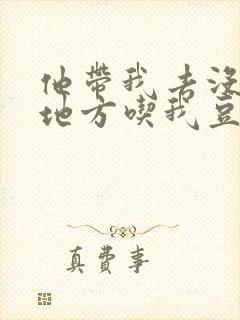 他帶我去沒
地方喫我豆
真費事